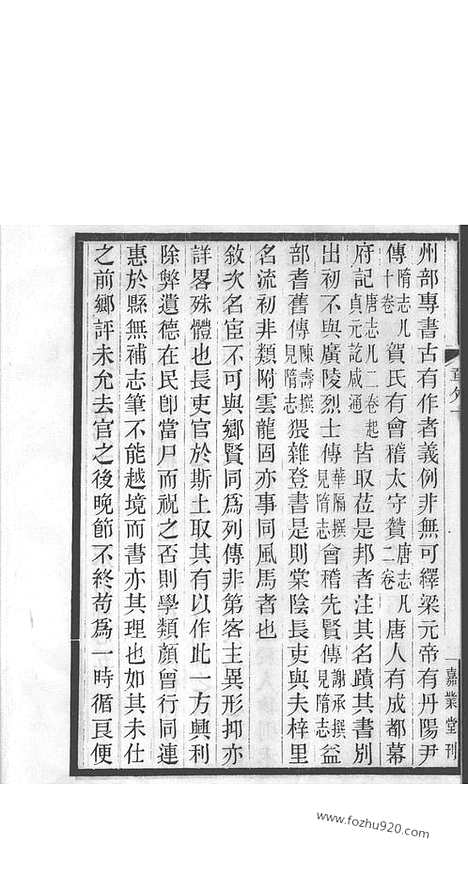 州部專書古有作者義例非無可繹梁元帝有丹陽尹
傳隋志凡十卷賀氏有會稽太守贊唐志凡二卷唐人有成都幕
府記唐志凡二卷起貞元訖咸通皆取莅是邦者注其名蹟其書別
出初不與廣陵烈士傳華隔撰見隋志會稽先賢傳謝承撰見隋志益
部耆舊傳陳壽撰見隋志猥雜登書是則棠陰長吏與夫梓里
名流初非類附雲龍固亦事同風馬者也
敘次名宦不可與鄉賢同爲列傳非第客主異形抑亦
詳畧殊體也長吏官於斯土取其有以作此一方興利
除弊遺德在民卽當尸而祝之否則學類顏曾行同連
惠於縣無補志筆不能越境而書亦其理也如其未仕
之前鄉評未允去官之後晚節不終苟爲一時循良便
嘉業堂刊
www.fozhu920.com